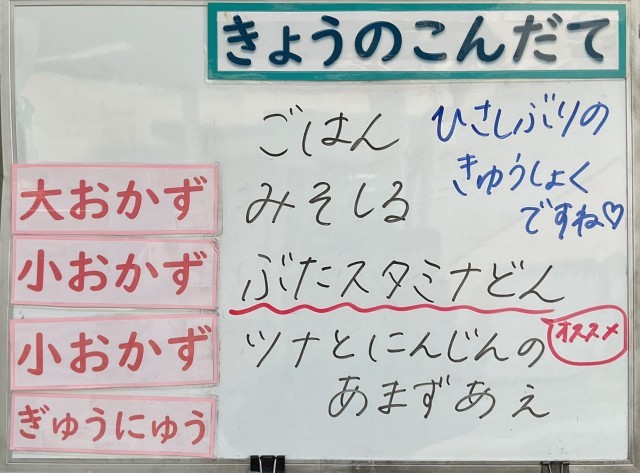 きょうのこんだて
ごはん
ひさしぶりの
きゅうしょく
ですね♡
大おかず
みそしる
小おかず
ぶたスタミナどん
オススメ
小おかず
ツナとにんじんの
あまずあえ
ぎゅうにゅう